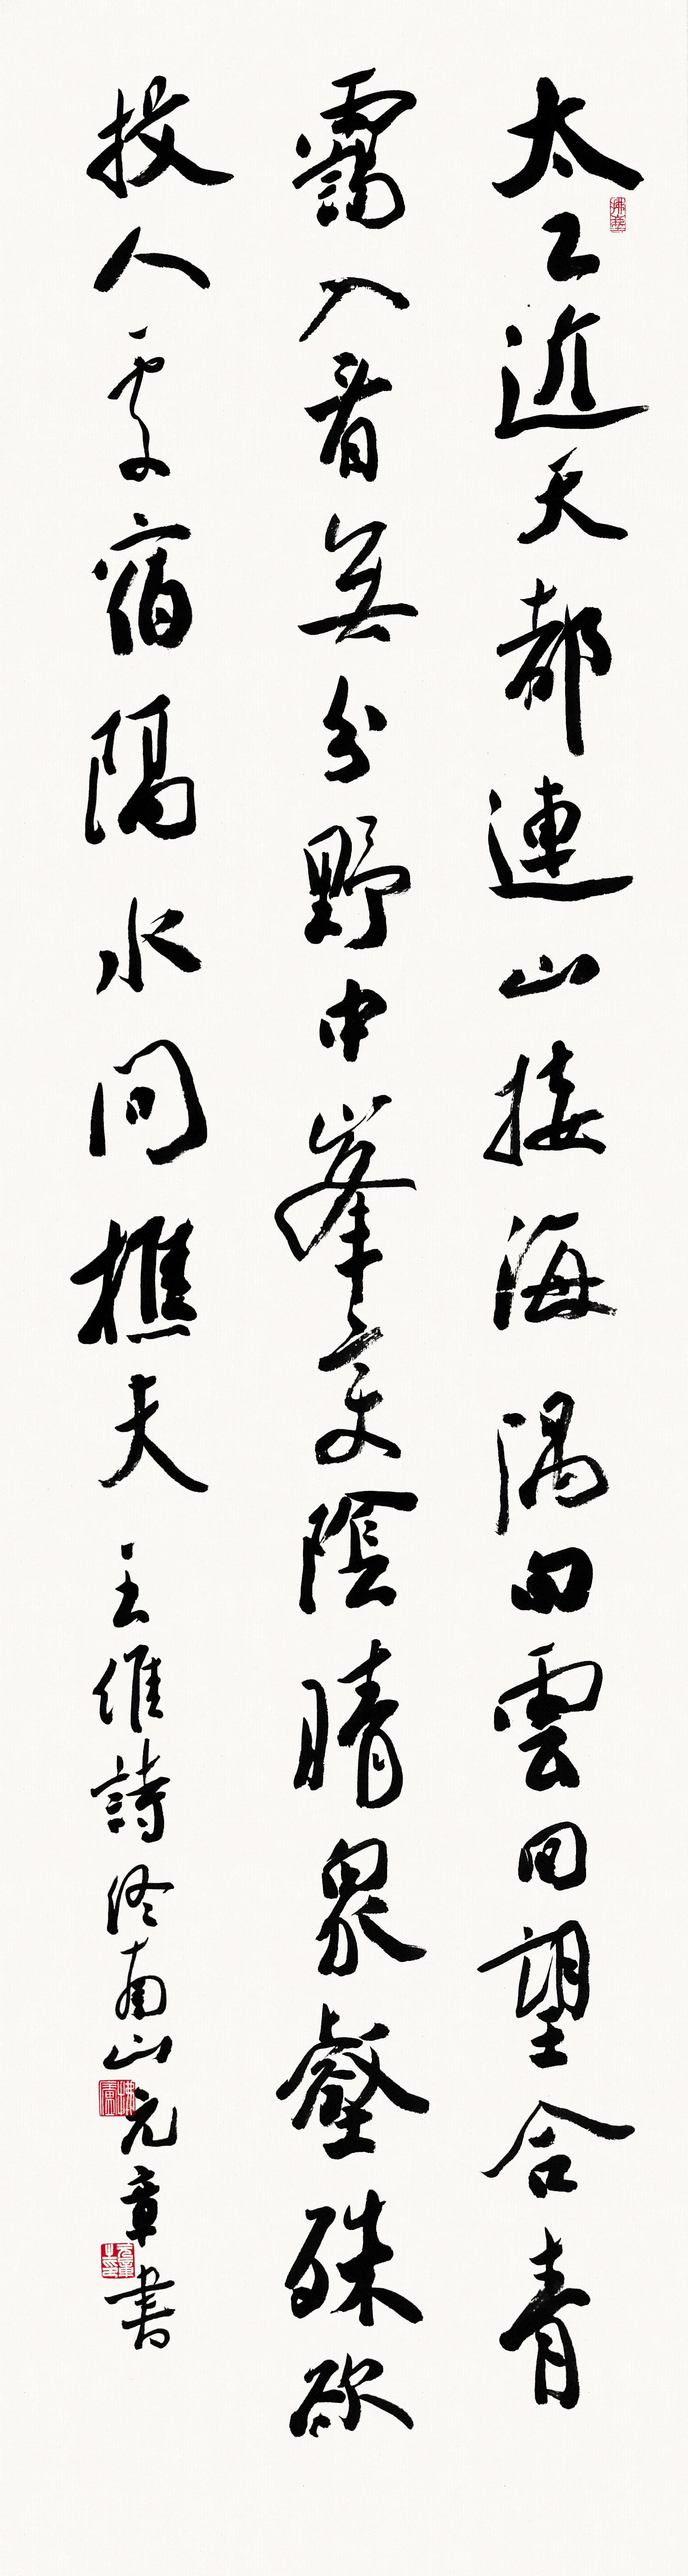 太乙近天都連山接海隅白雲回望合青
靄入看無分野中峯變陰晴衆壑殊欲
投人處宿隔水問樵夫 王維詩終南山元章書